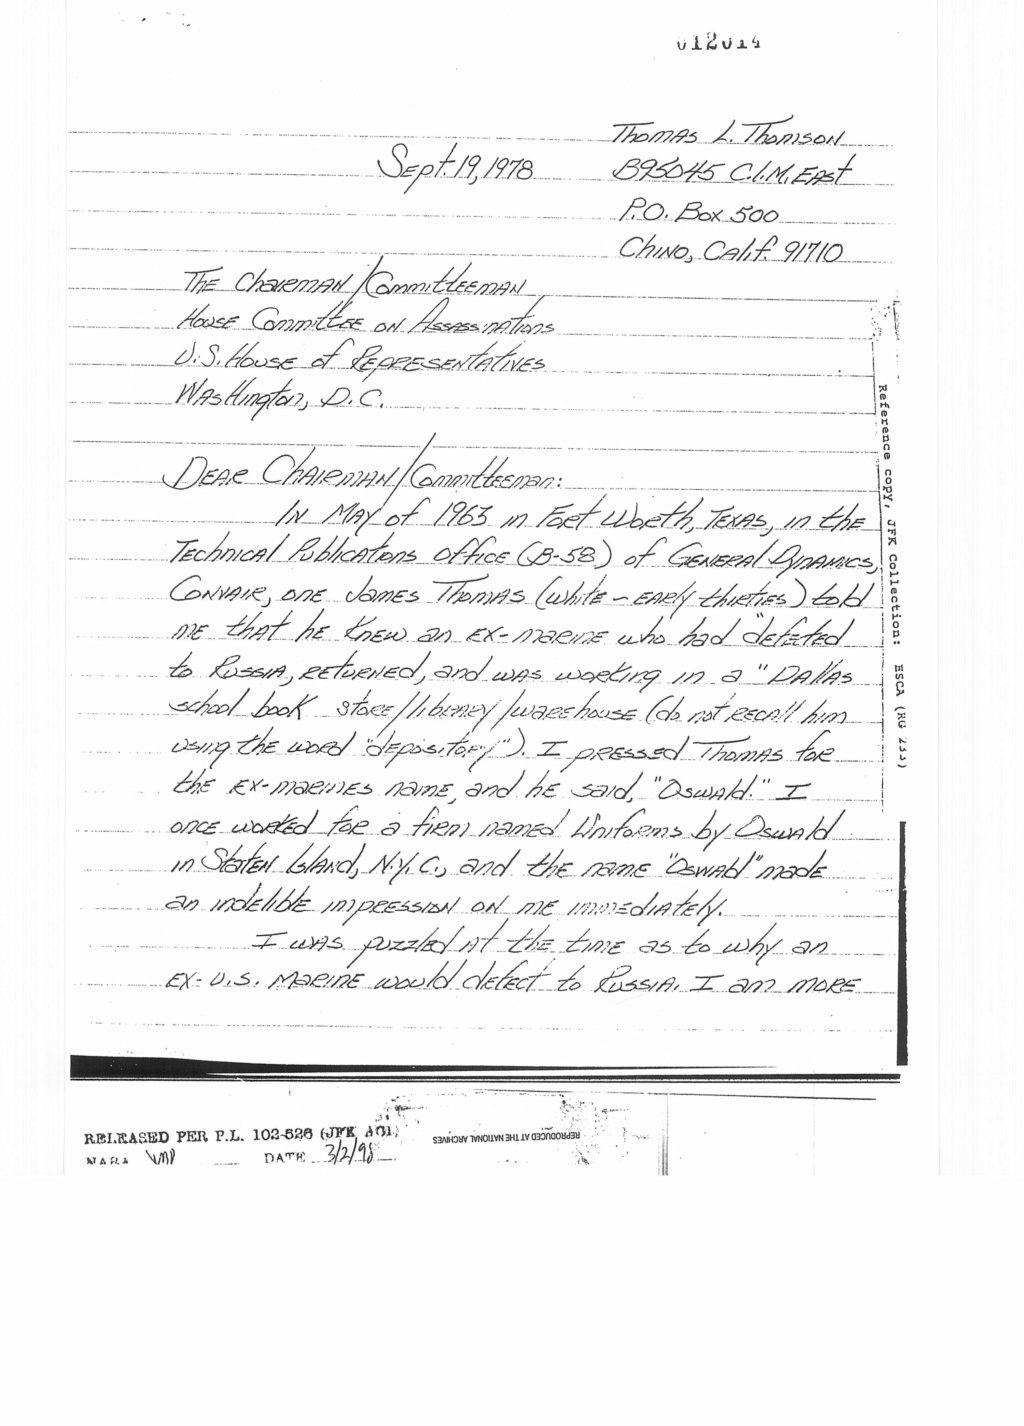 012014
Thomas L. Thomson
Sept. 19, 1978
B95045 C.I.M. East
P.O. Box 500
Chino, Calif. 91710
The Chairman/Committeeman
House Committee on Assassinations
U.S. House of Representatives
Washington, D.C.
Dear Chairman/Committeeman:
In May of 1963 in Fort Worth, Texas, in the
Technical Publications office (B-58) of General Dynamics,
Convair, one James Thomas (white - early thirties) told
me that he knew an ex-marine who had "defeted
to Russia, returned, and was working in a "Dallas
school book store/library/warehouse (do not recall him
using the word "depository"). I pressed Thomas for
the ex-marines name, and he said, "Oswald." I
once worked for a firm named Uniforms by Oswald
in Staten Island, N.Y.C., and the name "Oswald" made
an indelible impression on me immediately.
I was puzzled at the time as to why an
ex-U.S. Marine would defect to Russia. I am more
Reference copy, JFK Collection: HSCA (RG 233)
RELEASED PER P.L. 102-526 (JFK ACT)
NARA DATE 3/2/98
REPRODUCED AT THE NATIONAL ARCHIVES